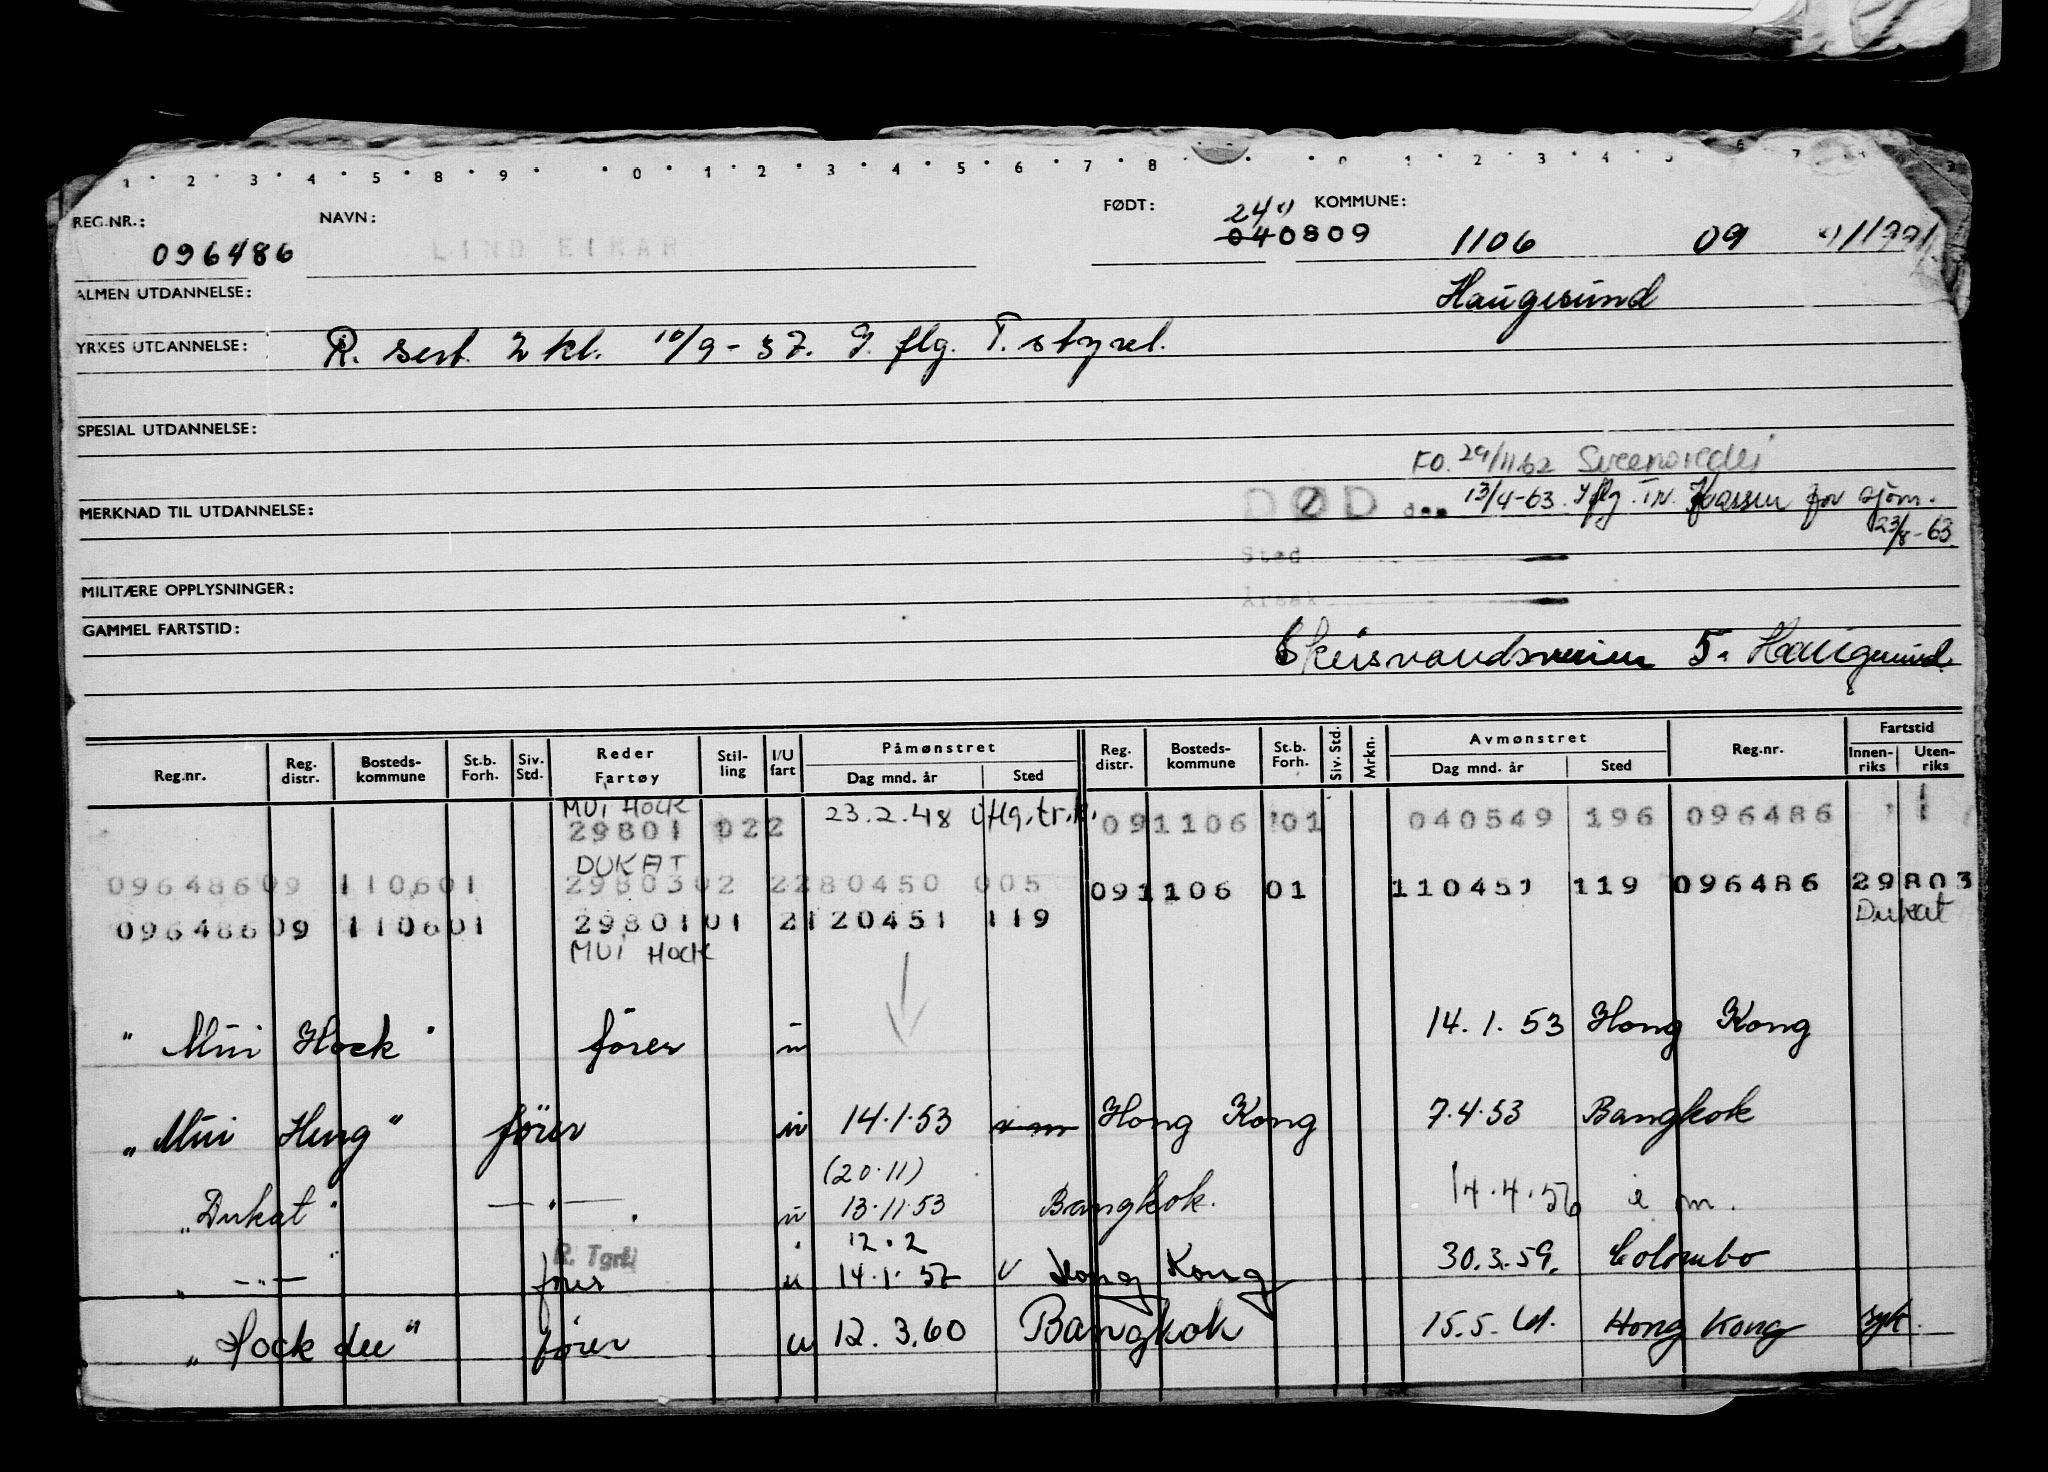 1 2 3 4 5 8 9 0 1 2 3 4 5 6 7 8 0 1 2 3 4 5 6 7
REG.NR.: NAVN: FØDT: 24 KOMMUNE:
096486 LIND EINAR 040809 1106 09
ALMEN UTDANNELSE: Haugesund
YRKES UTDANNELSE: R. sert. 2 kl. 10/9-37. I. flg. T. styrel.
SPESIAL UTDANNELSE:
FO. 29/11.62
MERKNAD TIL UTDANNELSE: DØD den 13/4-63. I flg. Tr. Kassen for sjøm.
23/8-63.
Sted
MILITÆRE OPPLYSNINGER:
Årsak
GAMMEL FARTSTID:
Skeisvandsveien 5. Haugesund.
Reg.nr. Reg. distr. Bosteds-kommune St.b. Forh. Siv. Std. Reder Fartøy Stil-ling I/U fart Påmønstret Dag mnd. år Sted Reg. distr. Bosteds-kommune St.b. Forh. Siv. Std. Mrkn. Avmønstret Dag mnd. år Sted Reg.nr. Fartstid Innen-riks Uten-riks
MUI HOCK
29801 022 23.2.48 iflg.tr.k. 091106 01 040549 196 096486
DUKAT
09648609 110601 2980302 2280450 005 091106 01 110451 119 096486 29803
09648609 110601 2980101 2120451 119 Dukat
MUI HOCK
"Mui Hock" fører u 14.1.53 Hong Kong
"Mui Heng" fører u 14.1.53 Hong Kong 7.4.53 Bangkok
(20.11)
"Dukat" —"— u 13.11.53 Bangkok. 14.4.56 i m.
12.2
R. Tgrf.
" —"— " fører u 14.1.57 v Hong Kong 30.3.59. Colombo
"Hock Lee" fører u 12.3.60 Bangkok 15.5.61. Hong Kong syk.